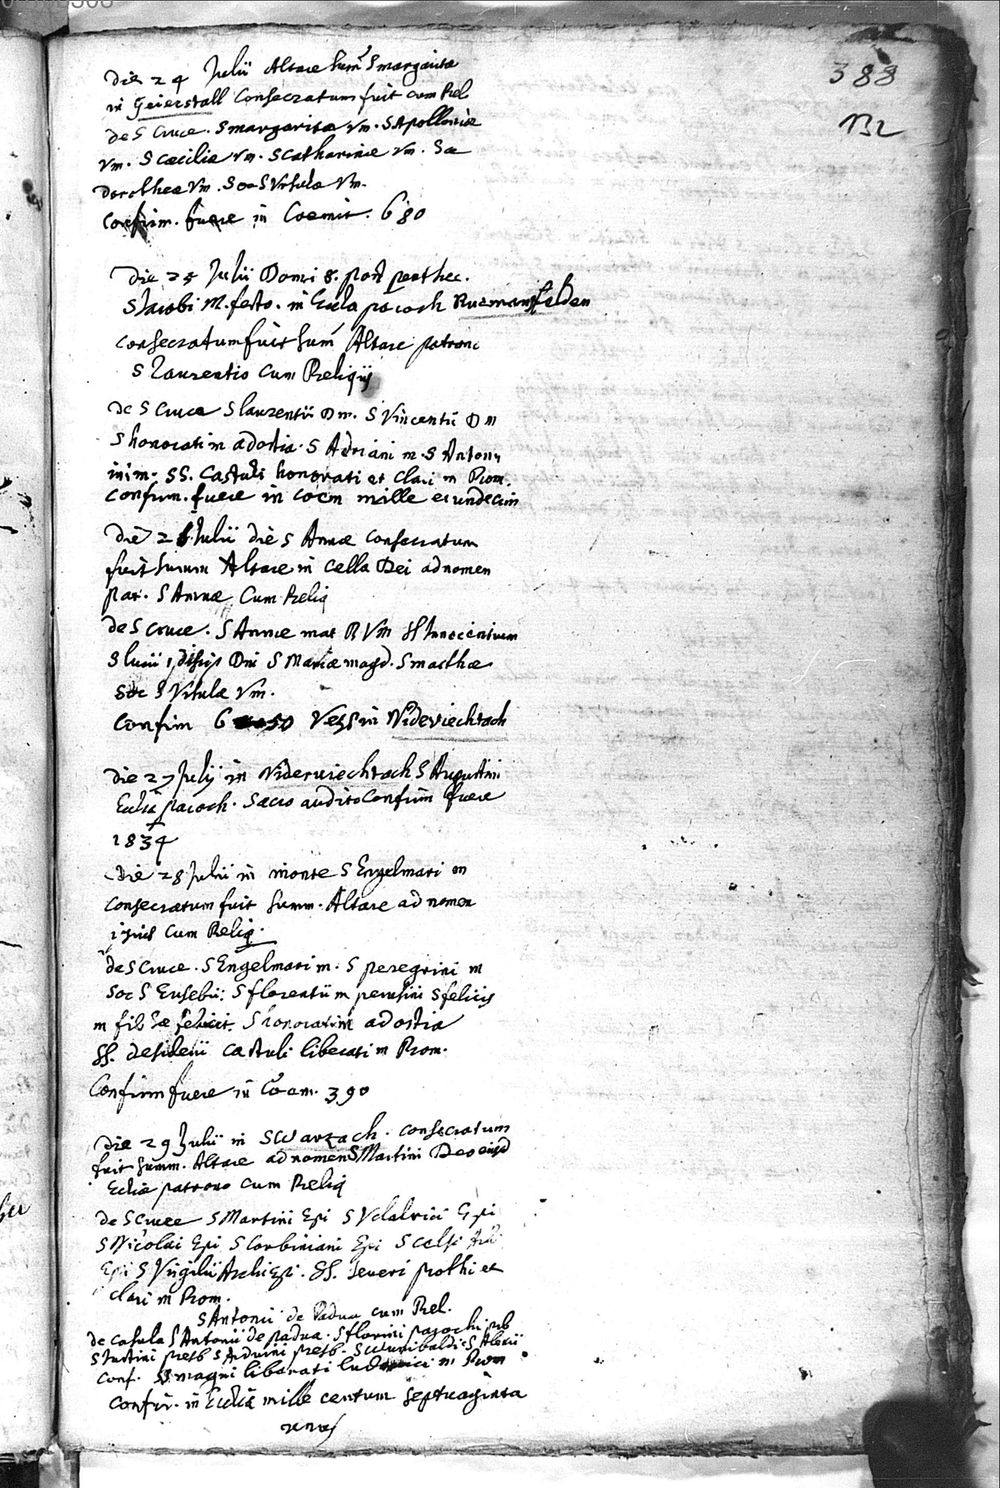 388
132
Die 24 Julii Altare hum S margarita
in Geierstall Consecratum fuit cum Rel
de S Cruce. S margarita vm. S Apolloniæ
vm. S cæciliæ vm. S Catharinæ vm. Sa
dorothea vm. Soc S Vitula Vm.
Confirm. fuere in Coemit. 680
Die 25 Julii Domi 8. post penthec.
S Jacobi M. festo. in Eccla paroch Ruemansfelden
consecratum fuit sum Altare patroni
S Laurentio Cum Reliqiis
de S Cruce S laurentii Dm. S Vincentii D m
S honorati m ad ostia. S Adriani m S Antony
inim. SS. Castuli honorati et Clari m Rom.
Confirm. fuere in coem mille et undecim
Die 26 Julii die S Annæ Consecratum
fuit sumum Altare in Cella Dei ad nomen
pat. S Annæ Cum Reliq
de S Cruce. S Annæ mat B Vm SS Innocentium
S lucii discip Dni S Mariæ magd. S marthæ
Soc S Vitulæ Vm.
Confirm 6 50 Vesp in Nideviechtach
Die 27 Julij in Niderviechtach S Augustini
Ecclia paroch. Sacro audito Confirm fuere
1834
Die 28 Julii in monte S Engelmari m
Consecratum fuit Summ. Altare ad nomen
ipius Cum Reliq.
de S Cruce. S Engelmari m. S peregrini m
Soc S Eusebii. S florentii m perusini S felicis
m fil Sæ felicit. S honorati m ad ostia
SS. desiderii Castuli liberati m Rom.
Confirm fuere in Coem. 390
Die 29 Julii in Swarzach. Consecratum
fuit Summ. Altare ad nomen S Martini Deo eiusd
Ecliæ patrono Cum Reliq
de S Cruce S Martini Epi S Vdalrici Epi
S Nicolai Epi S Corbiniani Epi S Celsi
Epi S Virgilii Archi Epi. SS. Severi prothi et
Clari m Rom.
S Antonii de Padua cum Rel.
de Casula S Antonii de padua. S florini parochi prb
S Justini presb S Arduini presb. S Wunibaldi S Alexii
Conf. SS magni liberati m Rom
Confir. in Ecclia mille centum septuaginta
unus